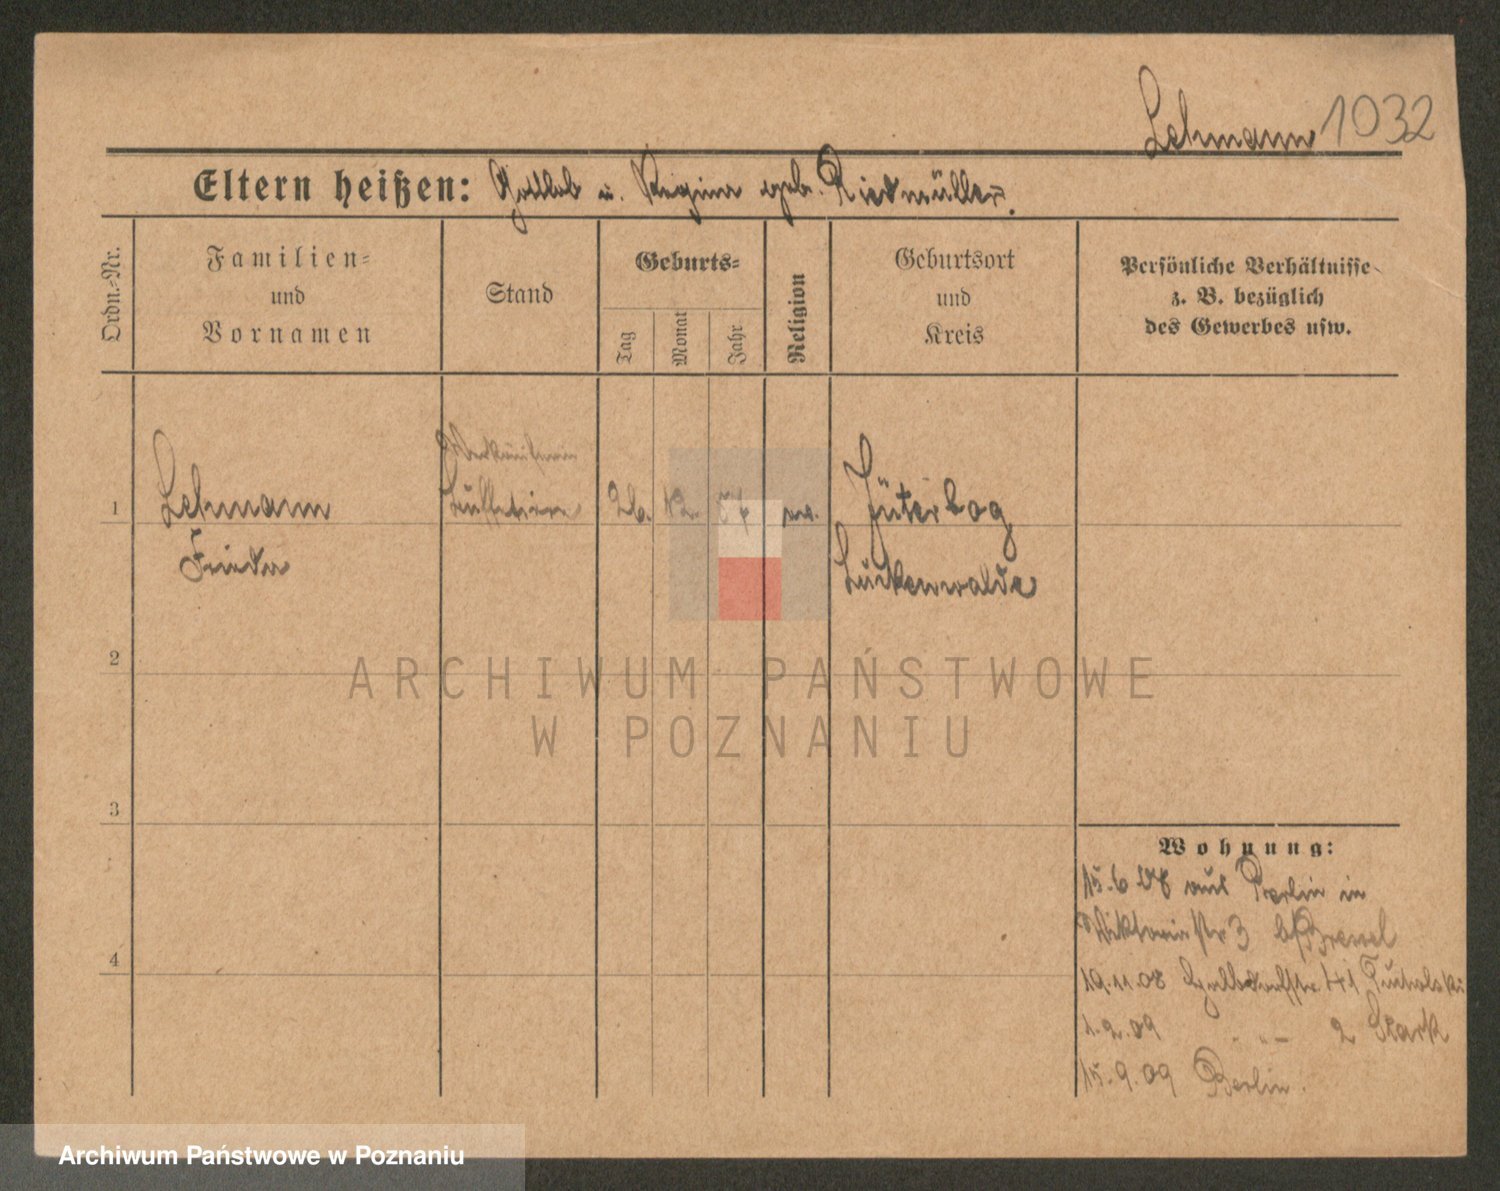 Lehmann 1032
Eltern heißen: Gottlob u. Regina geb. Riedmüller.
Ordn.-Nr.
Familien-
und
Vornamen
Stand
Geburts-
Tag
Monat
Jahr
Religion
Geburtsort
und
Kreis
Persönliche Verhältnisse
z. B. bezüglich
des Gewerbes usw.
Verkäuferin
1 Lehmann 26. 12. ev. Jüterbog
Frieda Luckenwalde
2
ARCHIWUM PAŃSTWOWE
W POZNANIU
3
Wohnung:
15.6.08 aus Berlin in
Viktoriastr 3 b/
4
19.11.08 41 Tucholski
1.2.09 - " - 2 Stark
15.9.09 Berlin.
Archiwum Państwowe w Poznaniu